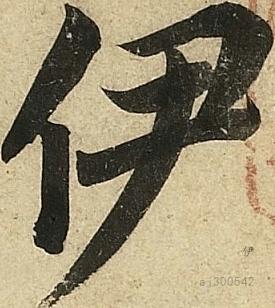 伊
伊
aj300542